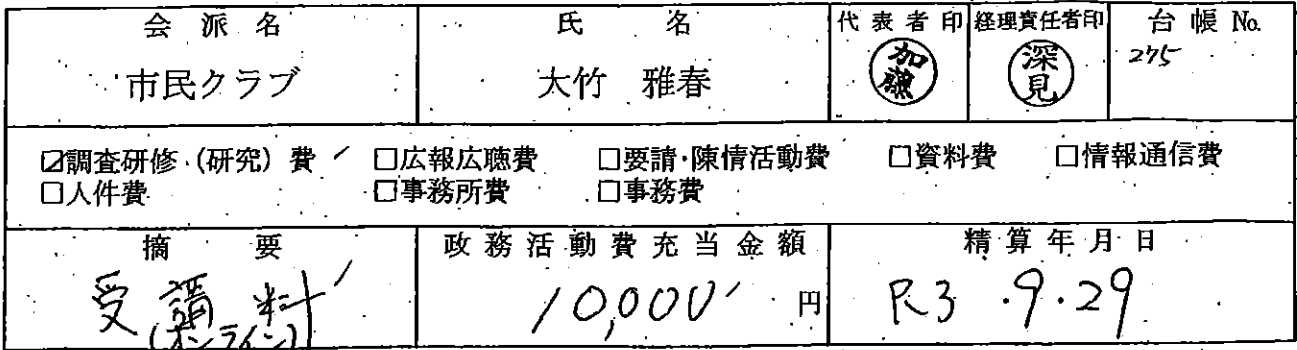 会派名 氏名 代表者印 経理責任者印 台帳No.
市民クラブ 大竹 雅春 加藤 深見 275
☑調査研修(研究)費 □広報広聴費 □要請・陳情活動費 □資料費 □情報通信費
□人件費 □事務所費 □事務費
摘要 政務活動費充当金額 精算年月日
受講料 10,000 円 R3.9.29
(オンライン)